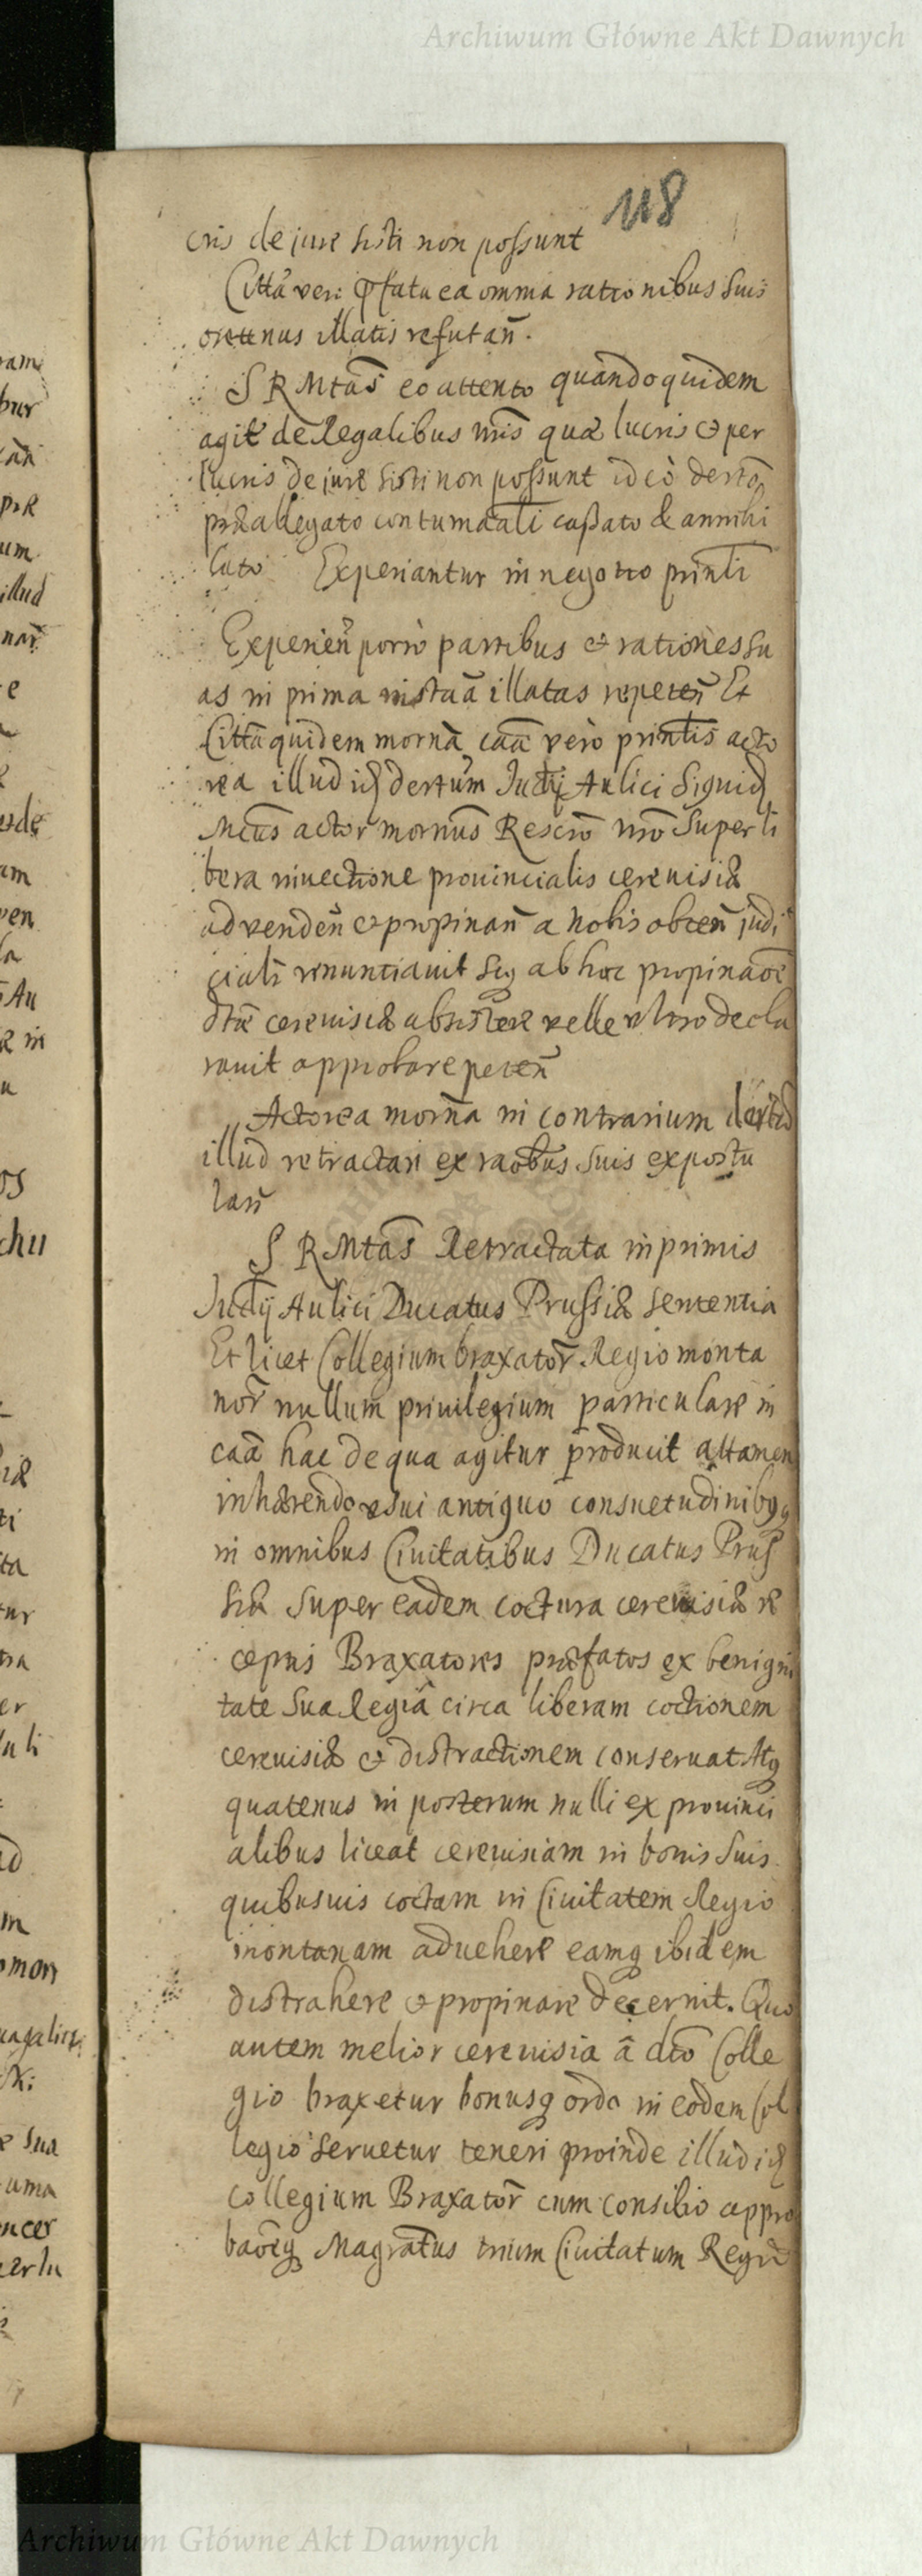 Archiwum Główne Akt Dawnych
118
cris de jure sisti non possunt
Citta vero pfata ea omnia rationibus suis
oretenus illatis refutan̄.
S R Mtas̄ eo attento quandoquidem
agit de Regalibus nris quæ lucris & per
lucris de jure sisti non possunt ideò derto
præallegato contumaāli cassato & annihi
lato Experiantur in negotio prinli
Experien̄ porrò partibus & rationes su
as in prima instaā illatas repeten̄ Et
Cittā quidem mornā caā verò printis acto
rea illud id dertum Judij Aulici Siquid
Mcus actor mornus Rescro nro super li
bera inuectione prouincialis cereuisiæ
ad venden̄ & propinan̄ a nobis obten̄ judi
ciali renuntiauit seq ab hoc propinaōe
dtæ cereuisiæ absistere velle vltro decla
rauit approbare peten̄
Actorea morna in contrarium dertum
illud retractari ex raōbus suis expostu
lan̄
S R Mtas̄ Retractata inprimis
Judij Aulici Ducatus Prussiæ sententia
Et licet Collegium braxator̄ Regiomonta
nor̄ nullum priuilegium particulare in
caā hac de qua agitur producit attamen
inhærendo vsui antiquo consuetudinibq
in omnibus Ciuitatibus Ducatus Prus
siæ super eadem coctura cereuisiæ re
ceptis Braxatores præfatos ex benigni
tate sua Regiā circa liberam coctionem
cereuisiæ & distractionem conseruat Atq
quatenus in posterum nulli ex prouinci
alibus liceat cereuisiam in bonis suis
quibusuis coctam in Ciuitatem Regio
montanam aduehere eamq ibidem
distrahere & propinare decernit. Quo
autem melior cereuisia ā dto Colle
gio braxetur bonusq ordo in eodem Col
legio seruetur teneri proinde illud id
Collegium Braxator̄ cum consilio appro
baōeq Magratus trium Ciuitatum Regio
Archiwum Główne Akt Dawnych